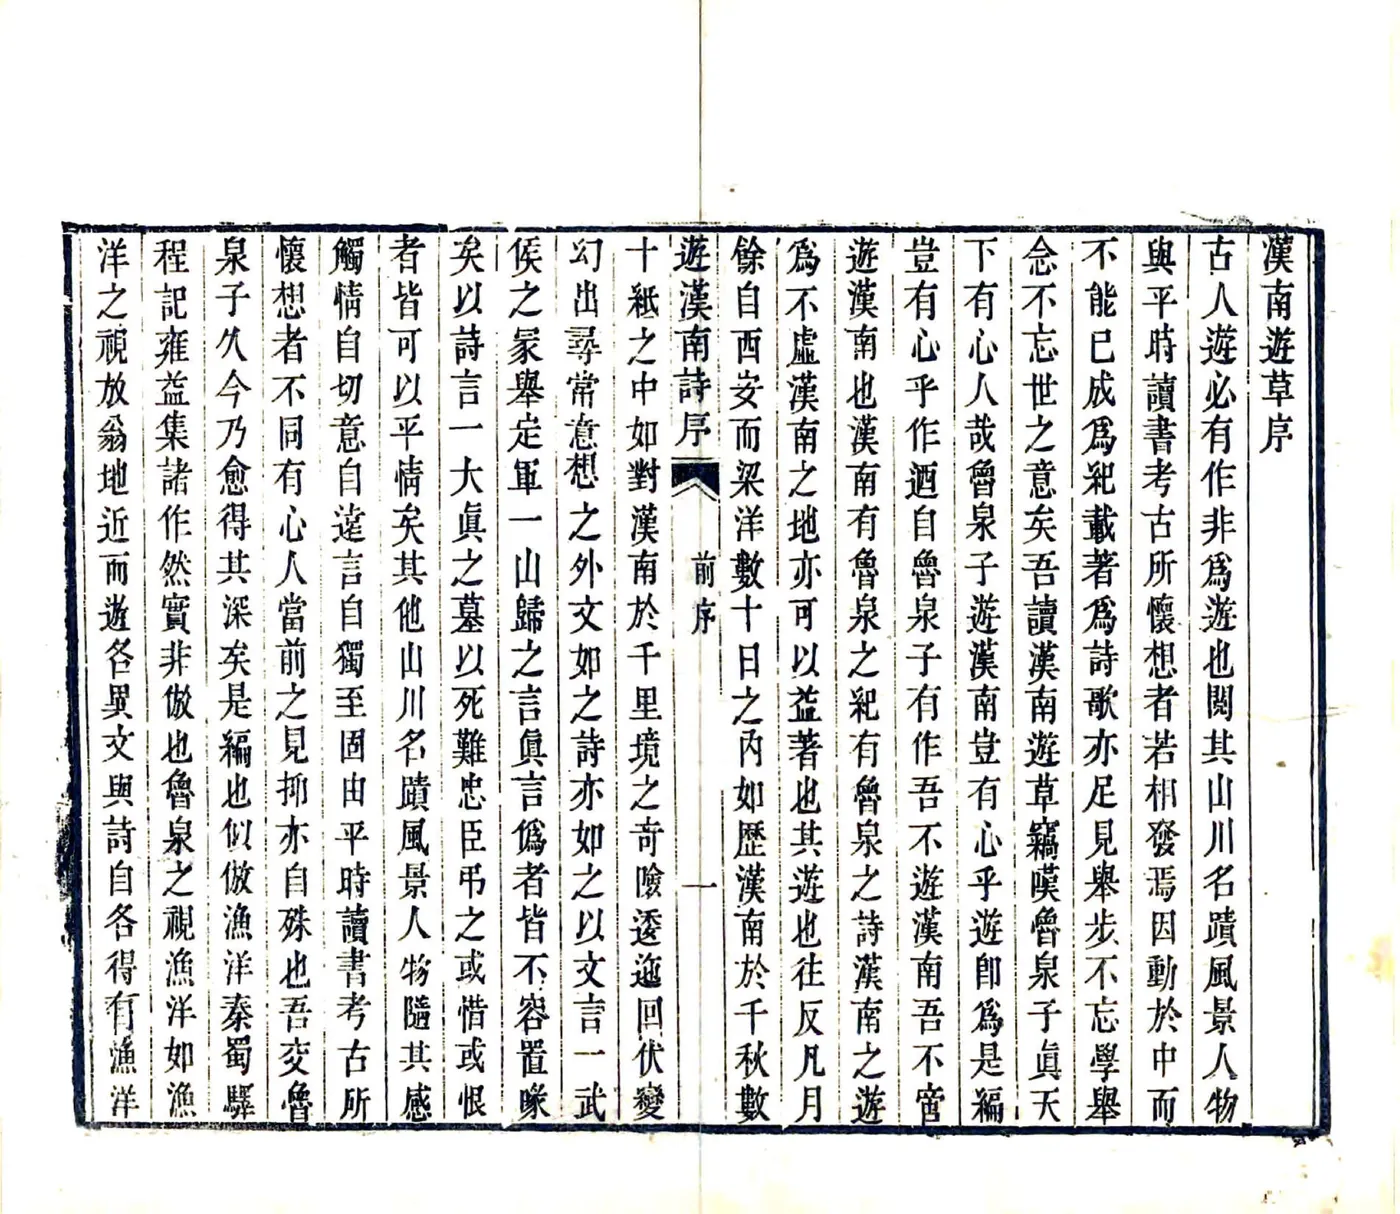 漢南遊草序
古人遊必有作非爲遊也閱其山川名蹟風景人物
與平時讀書考古所懷想者若相發焉因動於中而
不能已成爲紀載著爲詩歌亦足見舉步不忘學舉
念不忘世之意矣吾讀漢南遊草竊嘆魯泉子眞天
下有心人哉魯泉子遊漢南豈有心乎遊卽爲是編
豈有心乎作迺自魯泉子有作吾不遊漢南吾不啻
遊漢南也漢南有魯泉之紀有魯泉之詩漢南之遊
爲不虛漢南之地亦可以益著也其遊也往反凡月
餘自西安而梁洋數十日之內如歷漢南於千秋數
遊漢南詩序 前序 一
十紙之中如對漢南於千里境之奇險逶迤回伏變
幻出尋常意想之外文如之詩亦如之以文言一武
侯之冢舉定軍一山歸之言眞言僞者皆不容置喙
矣以詩言一大眞之墓以死難忠臣弔之或惜或恨
者皆可以平情矣其他山川名蹟風景人物隨其感
觸情自切意自遠言自獨至固由平時讀書考古所
懷想者不同有心人當前之見抑亦自殊也吾交魯
泉子久今乃愈得其深矣是編也似倣漁洋秦蜀驛
程記雍益集諸作然實非倣也魯泉之視漁洋如漁
洋之視放翁地近而遊各異文與詩自各得有漁洋